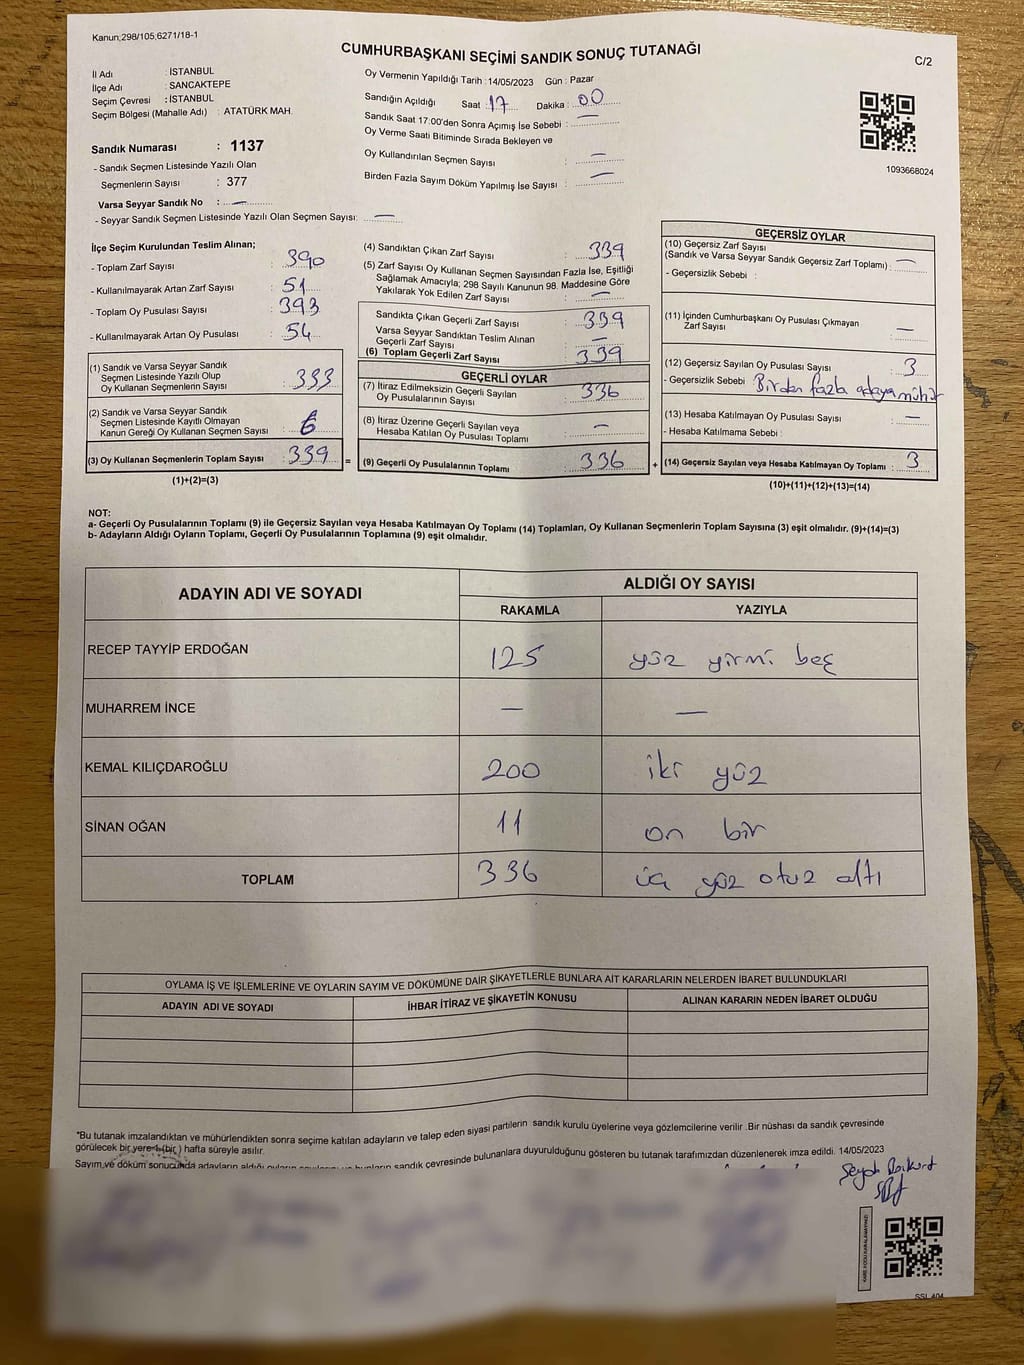 Kanun;298/105;6271/18-1
CUMHURBAŞKANI SEÇİMİ SANDIK SONUÇ TUTANAĞI
C/2
İl Adı : İSTANBUL
İlçe Adı : SANCAKTEPE
Seçim Çevresi : İSTANBUL
Seçim Bölgesi (Mahalle Adı) : ATATÜRK MAH.
Sandık Numarası : 1137
- Sandık Seçmen Listesinde Yazılı Olan
Seçmenlerin Sayısı : 377
Varsa Seyyar Sandık No : —
- Seyyar Sandık Seçmen Listesinde Yazılı Olan Seçmen Sayısı: —
Oy Vermenin Yapıldığı Tarih :14/05/2023 Gün : Pazar
Sandığın Açıldığı Saat : 17 Dakika : 00
Sandık Saat 17:00'den Sonra Açımış İse Sebebi : —
Oy Verme Saati Bitiminde Sırada Bekleyen ve
Oy Kullandırılan Seçmen Sayısı : —
Birden Fazla Sayım Döküm Yapılmış İse Sayısı : —
1093668024
İlçe Seçim Kurulundan Teslim Alınan;
- Toplam Zarf Sayısı : 390
- Kullanılmayarak Artan Zarf Sayısı : 51
- Toplam Oy Pusulası Sayısı : 393
- Kullanılmayarak Artan Oy Pusulası : 54
(1) Sandık ve Varsa Seyyar Sandık
Seçmen Listesinde Yazılı Olup
Oy Kullanan Seçmenlerin Sayısı : 333
(2) Sandık ve Varsa Seyyar Sandık
Seçmen Listesinde Kayitli Olmayan
Kanun Gereği Oy Kullanan Seçmen Sayısı : 6
(3) Oy Kullanan Seçmenlerin Toplam Sayısı : 339 =
(1)+(2)=(3)
(4) Sandıktan Çıkan Zarf Sayısı : 339
(5) Zarf Sayısı Oy Kullanan Seçmen Sayısından Fazla İse, Eşitliği
Sağlamak Amacıyla; 298 Sayılı Kanunun 98. Maddesine Göre
Yakılarak Yok Edilen Zarf Sayısı : —
Sandıkta Çıkan Geçerli Zarf Sayısı : 339
Varsa Seyyar Sandıktan Teslim Alınan
Geçerli Zarf Sayısı : —
(6) Toplam Geçerli Zarf Sayısı : 339
GEÇERLİ OYLAR
(7) İtiraz Edilmeksizin Geçerli Sayılan
Oy Pusulalarının Sayısı : 336
(8) İtiraz Üzerine Geçerli Sayılan veya
Hesaba Katılan Oy Pusulaları Toplamı : —
(9) Geçerli Oy Pusulalarının Toplamı : 336 +
GEÇERSİZ OYLAR
(10) Geçersiz Zarf Sayısı
(Sandık ve Varsa Seyyar Sandık Geçersiz Zarf Toplamı) : —
- Geçersizlik Sebebi :
(11) İçinden Cumhurbaşkanı Oy Pusulası Çıkmayan
Zarf Sayısı : —
(12) Geçersiz Sayılan Oy Pusulası Sayısı : 3
- Geçersizlik Sebebi : Birden fazla adaya mühür
(13) Hesaba Katılmayan Oy Pusulası Sayısı : —
- Hesaba Katılmama Sebebi :
(14) Geçersiz Sayılan veya Hesaba Katılmayan Oy Toplamı : 3
(10)+(11)+(12)+(13)=(14)
NOT:
a- Geçerli Oy Pusulalarının Toplamı (9) ile Geçersiz Sayılan veya Hesaba Katılmayan Oy Toplamı (14) Toplamları, Oy Kullanan Seçmenlerin Toplam Sayısına (3) eşit olmalıdır. (9)+(14)=(3)
b- Adayların Aldığı Oyların Toplamı, Geçerli Oy Pusulalarının Toplamına (9) eşit olmalıdır.
ADAYIN ADI VE SOYADI ALDIĞI OY SAYISI
RAKAMLA YAZIYLA
RECEP TAYYİP ERDOĞAN 125 yüz yirmi beş
MUHARREM İNCE — —
KEMAL KILIÇDAROĞLU 200 iki yüz
SİNAN OĞAN 11 on bir
TOPLAM 336 üç yüz otuz altı
OYLAMA İŞ VE İŞLEMLERİNE VE OYLARIN SAYIM VE DÖKÜMÜNE DAİR ŞİKAYETLERLE BUNLARA AİT KARARLARIN NELERDEN İBARET BULUNDUKLARI
ADAYIN ADI VE SOYADI İHBAR İTİRAZ VE ŞİKAYETİN KONUSU ALINAN KARARIN NEDEN İBARET OLDUĞU
*Bu tutanak imzalandıktan ve mühürlendikten sonra seçime katılan adayların ve talep eden siyasi partilerin sandık kurulu üyelerine veya gözlemcilerine verilir .Bir nüshası da sandık çevresinde
görülecek bir yere 1 (bir ) hafta süreyle asılır.
Sayım ve döküm sonucunda adayların aldığı sandık çevresinde bulunanlara duyurulduğunu gösteren bu tutanak tarafımızdan düzenlenerek imza edildi. 14/05/2023
SSL 404